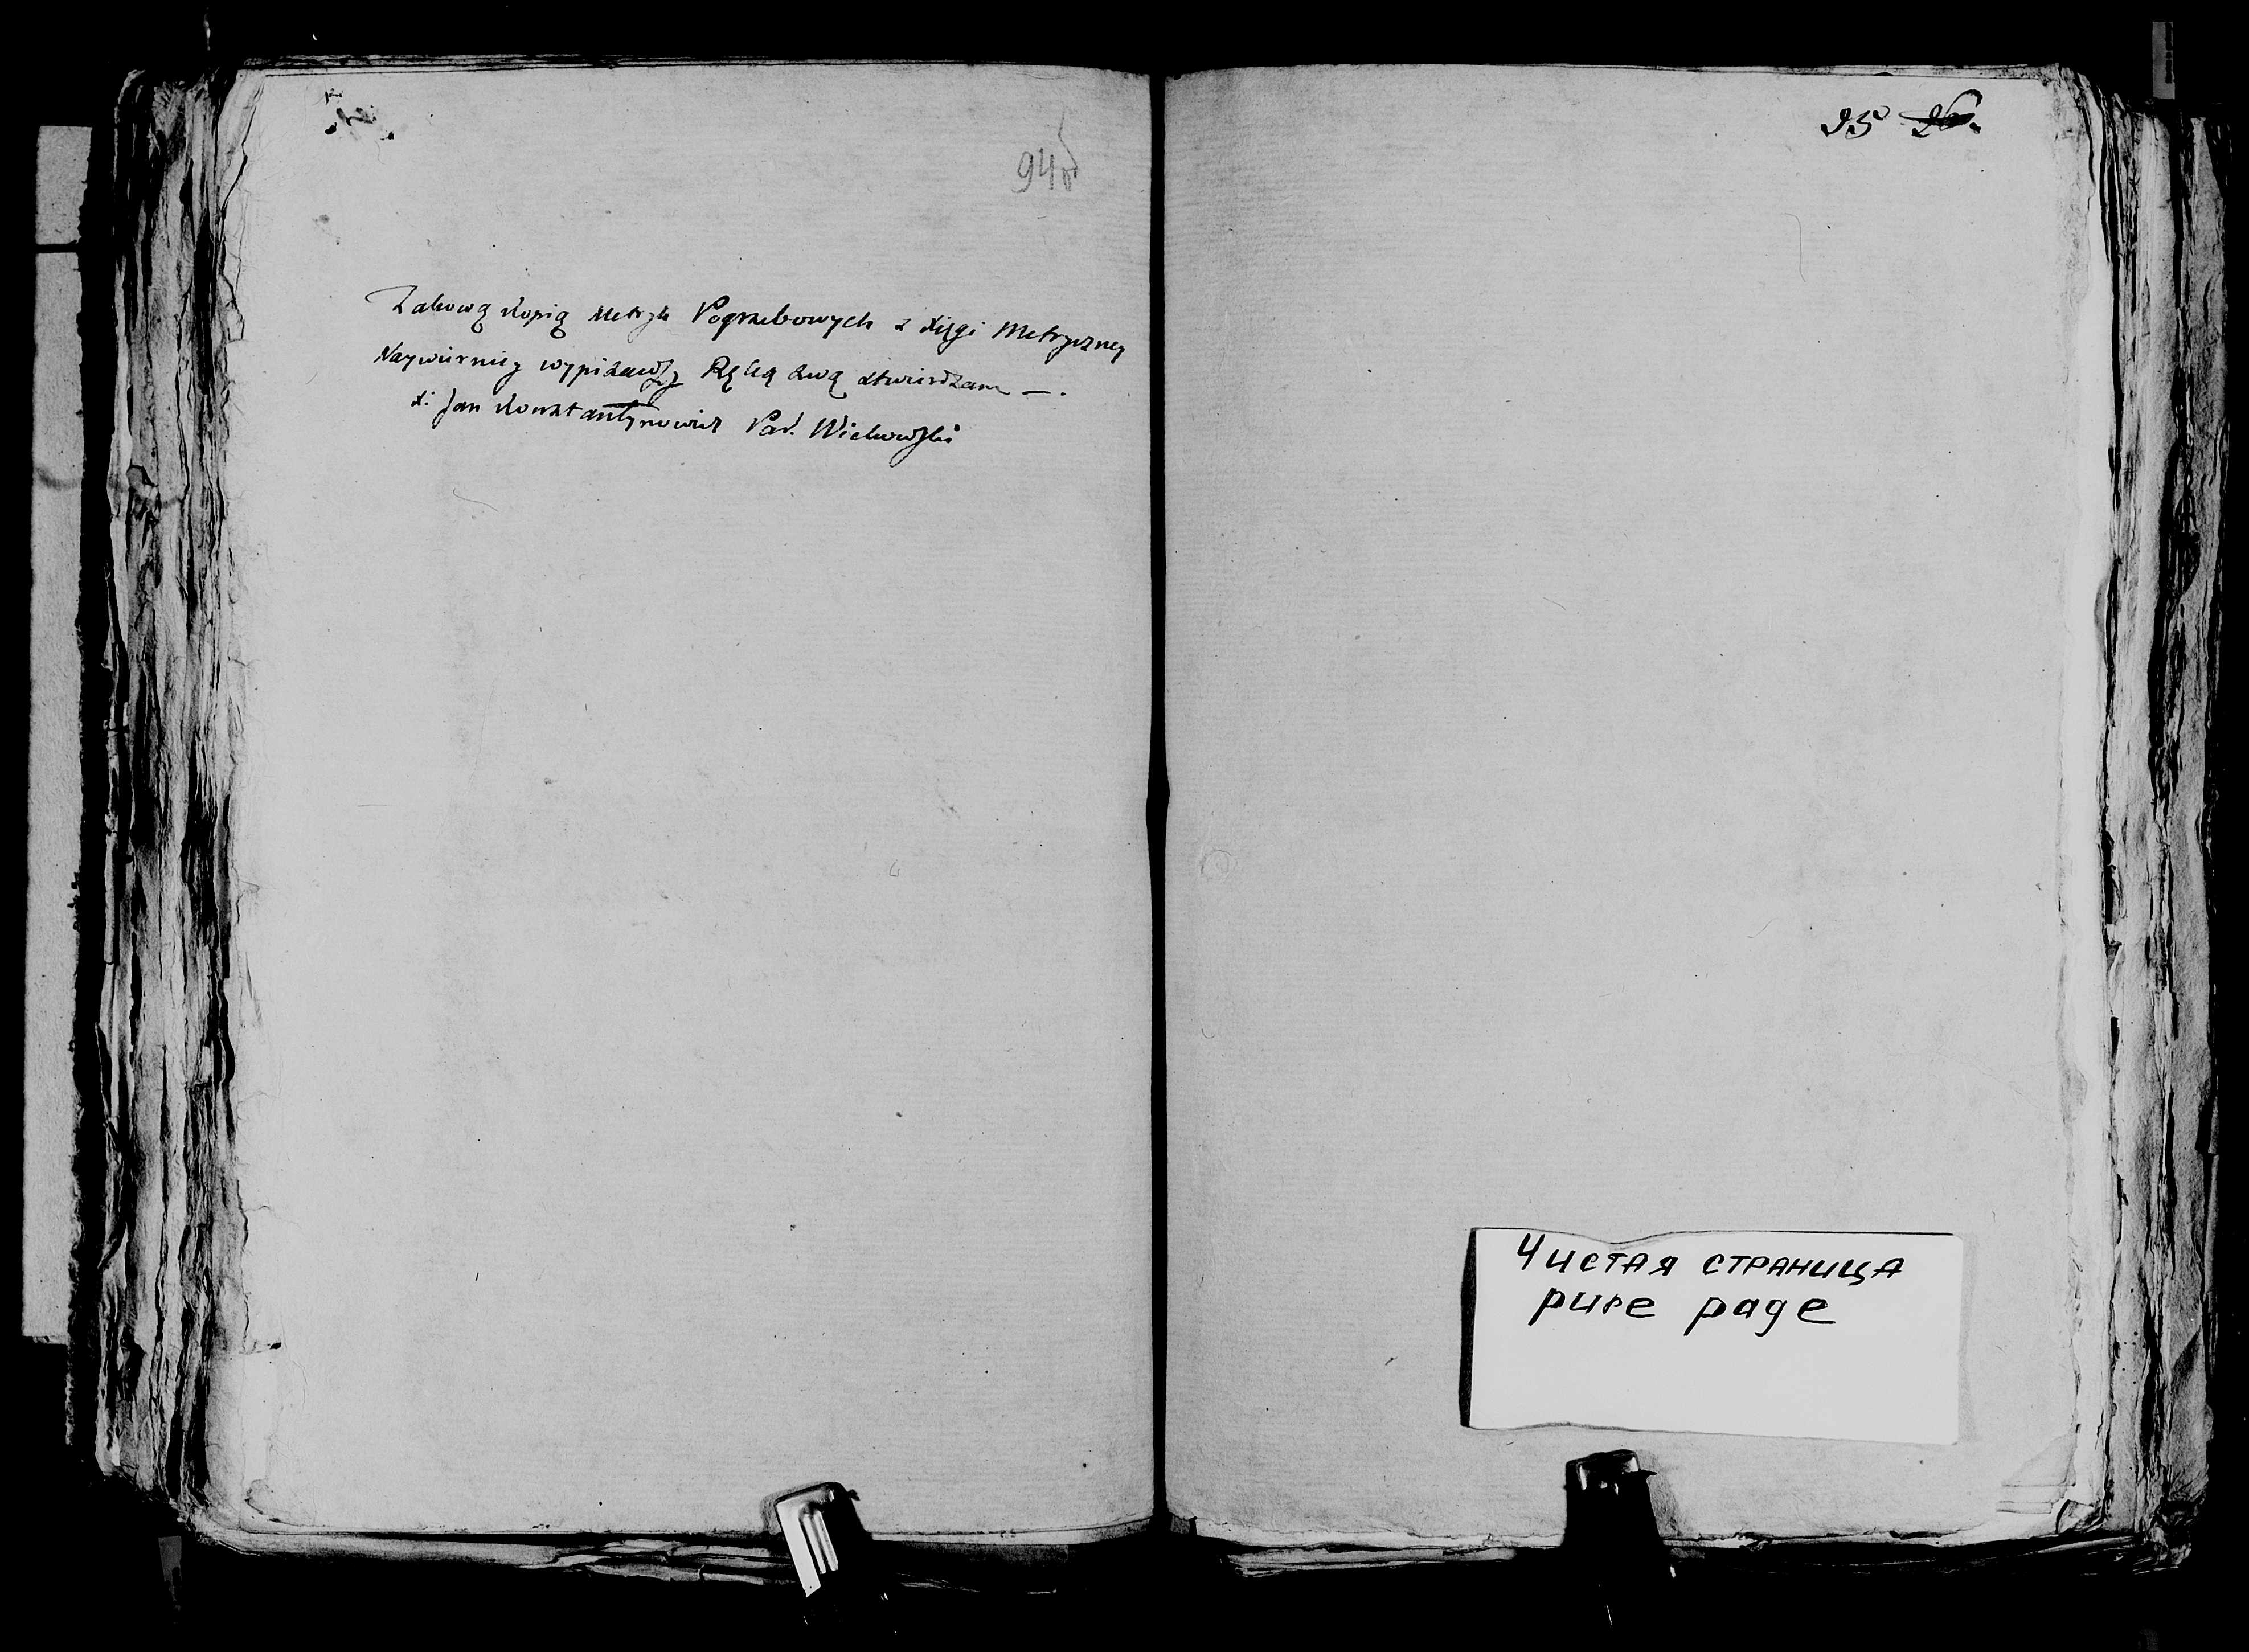 94 об
Takową Kopią Metryk Pogrzebowych z Xięgi Metryczney
Naywierniey wypisawszy Ręką swą stwierdzam —.
X: Jan Konstantynowicz Par. Wickowski
95
Чистая страница
pure page